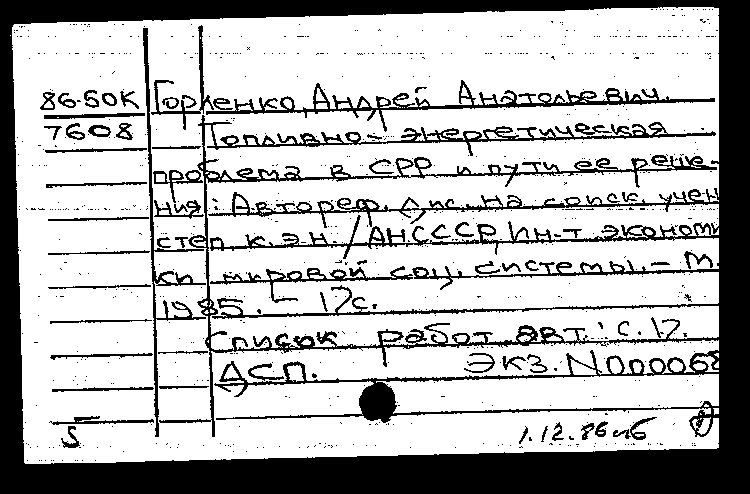 86-50К Горленко, Андрей Анатольевич.
7608 Топливно-энергетическая
проблема в СРР и пути ее реше-
ния: Автореф. дис. на соиск. учен
степ. к.э.н. / АН СССР, Ин-т экономи
ки мировой соц. системы. – М.
1985. – 17с.
Список работ авт.: с. 17.
ДСП. Экз. N 000068
5
1.12.86